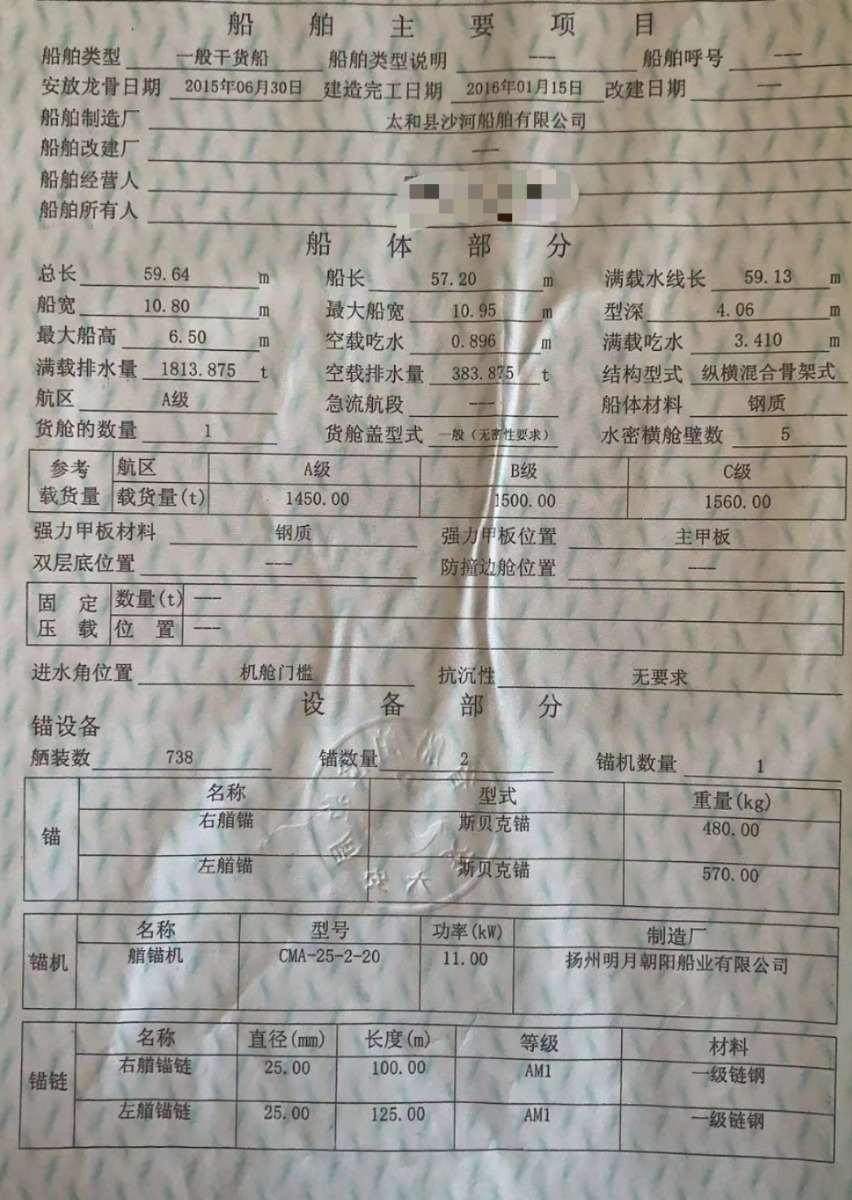 船舶主要项目
船舶类型 一般干货船 船舶类型说明 --- 船舶呼号 ---
安放龙骨日期 2015年06月30日 建造完工日期 2016年01月15日 改建日期 ---
船舶制造厂 太和县沙河船舶有限公司
船舶改建厂 ---
船舶经营人
船舶所有人
船体部分
总长 59.64 m 船长 57.20 m 满载水线长 59.13 m
船宽 10.80 m 最大船宽 10.95 m 型深 4.06 m
最大船高 6.50 m 空载吃水 0.896 m 满载吃水 3.410 m
满载排水量 1813.875 t 空载排水量 383.875 t 结构型式 纵横混合骨架式
航区 A级 急流航段 --- 船体材料 钢质
货舱的数量 1 货舱盖型式 一般（无密性要求） 水密横舱壁数 5
参考 航区 A级 B级 C级
载货量 载货量(t) 1450.00 1500.00 1560.00
强力甲板材料 钢质 强力甲板位置 主甲板
双层底位置 --- 防撞边舱位置 ---
固定 数量(t) ---
压载 位置 ---
进水角位置 机舱门槛 抗沉性 无要求
设备部分
锚设备
舾装数 738 锚数量 2 锚机数量 1
名称 型式 重量(kg)
锚 右艏锚 斯贝克锚 480.00
左艏锚 斯贝克锚 570.00
名称 型号 功率(kW) 制造厂
锚机 艏锚机 CMA-25-2-20 11.00 扬州明月朝阳船业有限公司
名称 直径(mm) 长度(m) 等级 材料
锚链 右艏锚链 25.00 100.00 AM1 一级链钢
左艏锚链 25.00 125.00 AM1 一级链钢